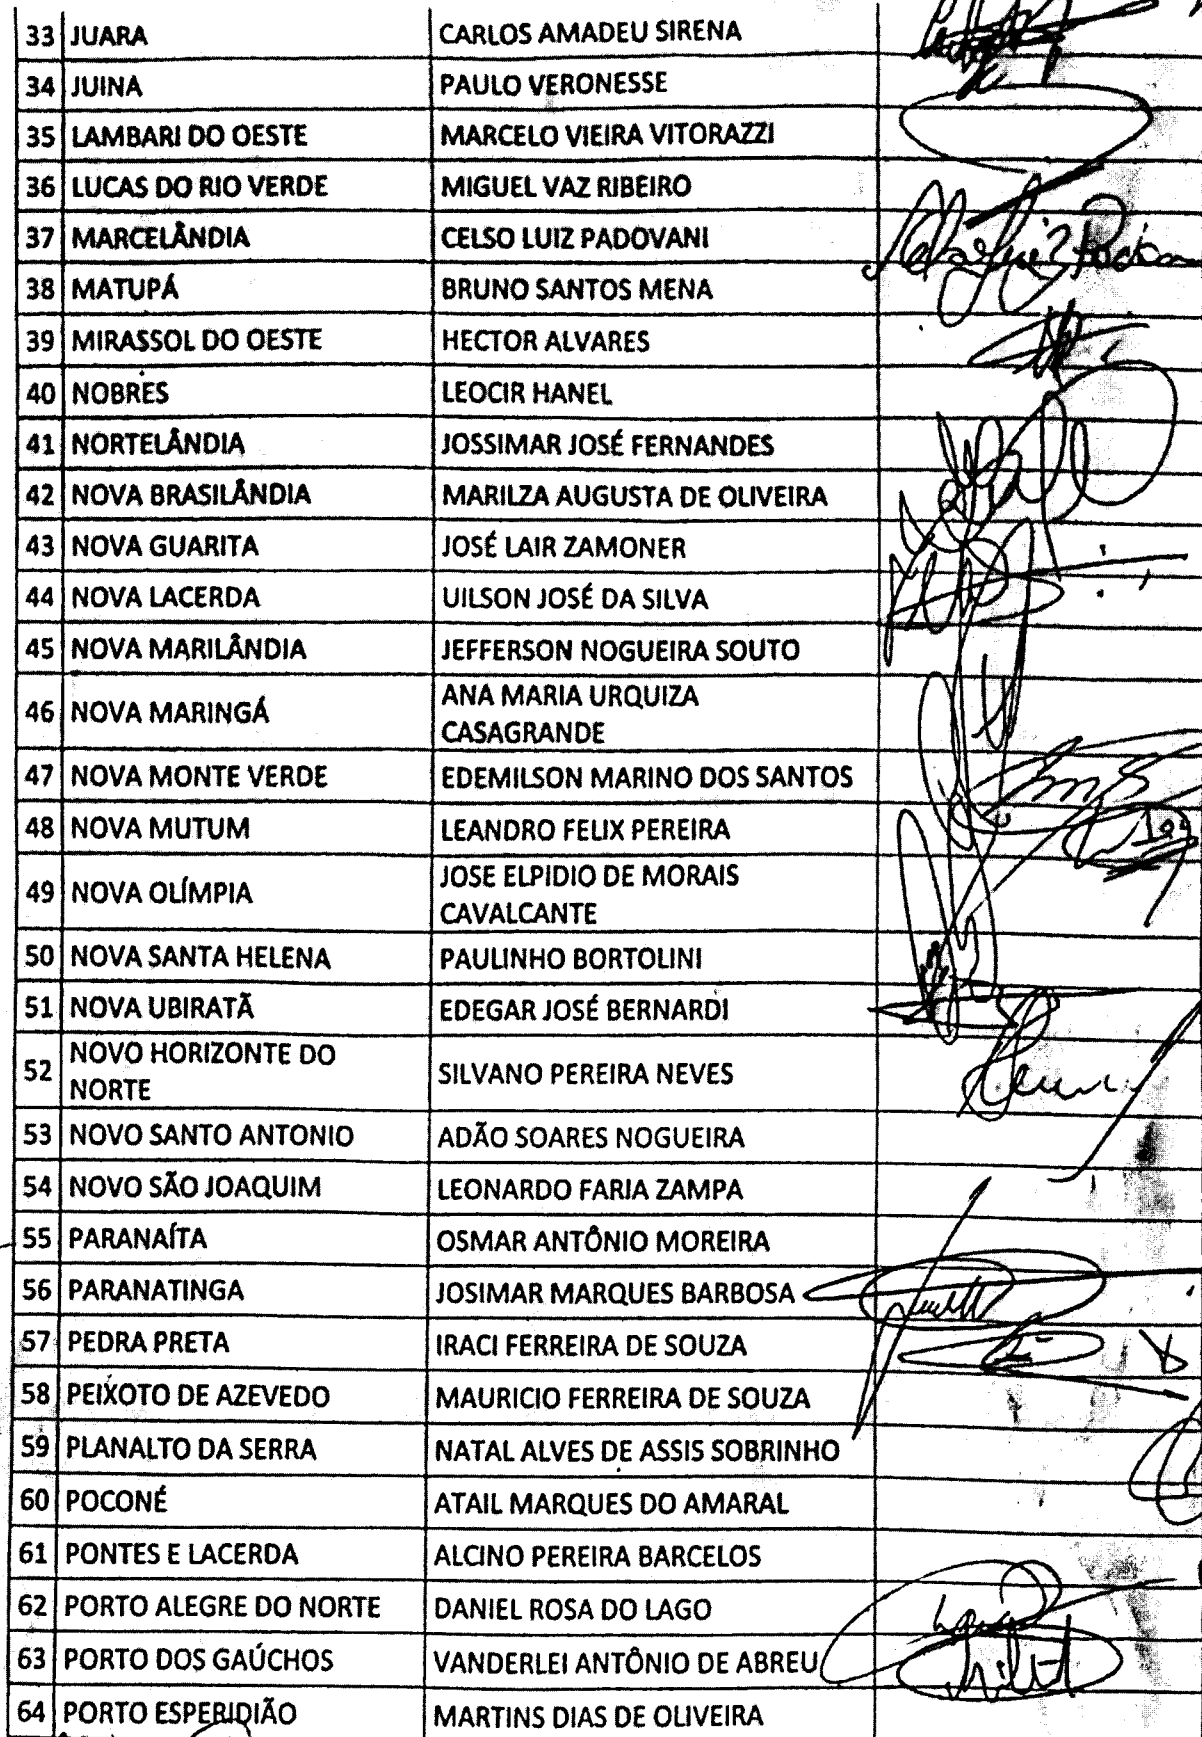 33 JUARA CARLOS AMADEU SIRENA
34 JUINA PAULO VERONESSE
35 LAMBARI DO OESTE MARCELO VIEIRA VITORAZZI
36 LUCAS DO RIO VERDE MIGUEL VAZ RIBEIRO
37 MARCELÂNDIA CELSO LUIZ PADOVANI
38 MATUPÁ BRUNO SANTOS MENA
39 MIRASSOL DO OESTE HECTOR ALVARES
40 NOBRES LEOCIR HANEL
41 NORTELÂNDIA JOSSIMAR JOSÉ FERNANDES
42 NOVA BRASILÂNDIA MARILZA AUGUSTA DE OLIVEIRA
43 NOVA GUARITA JOSÉ LAIR ZAMONER
44 NOVA LACERDA UILSON JOSÉ DA SILVA
45 NOVA MARILÂNDIA JEFFERSON NOGUEIRA SOUTO
46 NOVA MARINGÁ ANA MARIA URQUIZA
CASAGRANDE
47 NOVA MONTE VERDE EDEMILSON MARINO DOS SANTOS
48 NOVA MUTUM LEANDRO FELIX PEREIRA
49 NOVA OLÍMPIA JOSE ELPIDIO DE MORAIS
CAVALCANTE
50 NOVA SANTA HELENA PAULINHO BORTOLINI
51 NOVA UBIRATÃ EDEGAR JOSÉ BERNARDI
52 NOVO HORIZONTE DO
NORTE SILVANO PEREIRA NEVES
53 NOVO SANTO ANTONIO ADÃO SOARES NOGUEIRA
54 NOVO SÃO JOAQUIM LEONARDO FARIA ZAMPA
55 PARANAÍTA OSMAR ANTÔNIO MOREIRA
56 PARANATINGA JOSIMAR MARQUES BARBOSA
57 PEDRA PRETA IRACI FERREIRA DE SOUZA
58 PEIXOTO DE AZEVEDO MAURICIO FERREIRA DE SOUZA
59 PLANALTO DA SERRA NATAL ALVES DE ASSIS SOBRINHO
60 POCONÉ ATAIL MARQUES DO AMARAL
61 PONTES E LACERDA ALCINO PEREIRA BARCELOS
62 PORTO ALEGRE DO NORTE DANIEL ROSA DO LAGO
63 PORTO DOS GAÚCHOS VANDERLEI ANTÔNIO DE ABREU
64 PORTO ESPERIDIÃO MARTINS DIAS DE OLIVEIRA